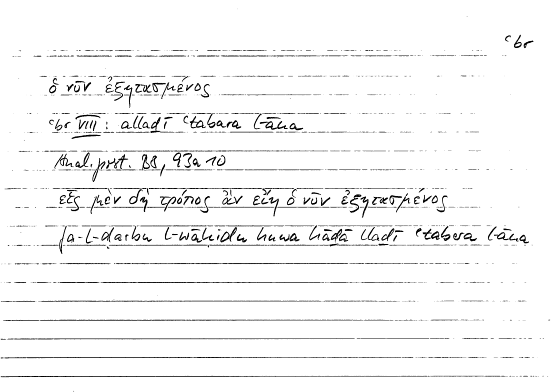 ʿbr
ὁ νῦν ἐξητασμένος
ʿbr VIII: alladī ʿtabara l-āna
Anal. post. B8, 93a10
εἷς μὲν δὴ τρόπος ἂν εἴη ὁ νῦν ἐξητασμένος
fa-l-ḍarbu l-wāḥidu huwa hādā lladī ʿtabara l-āna